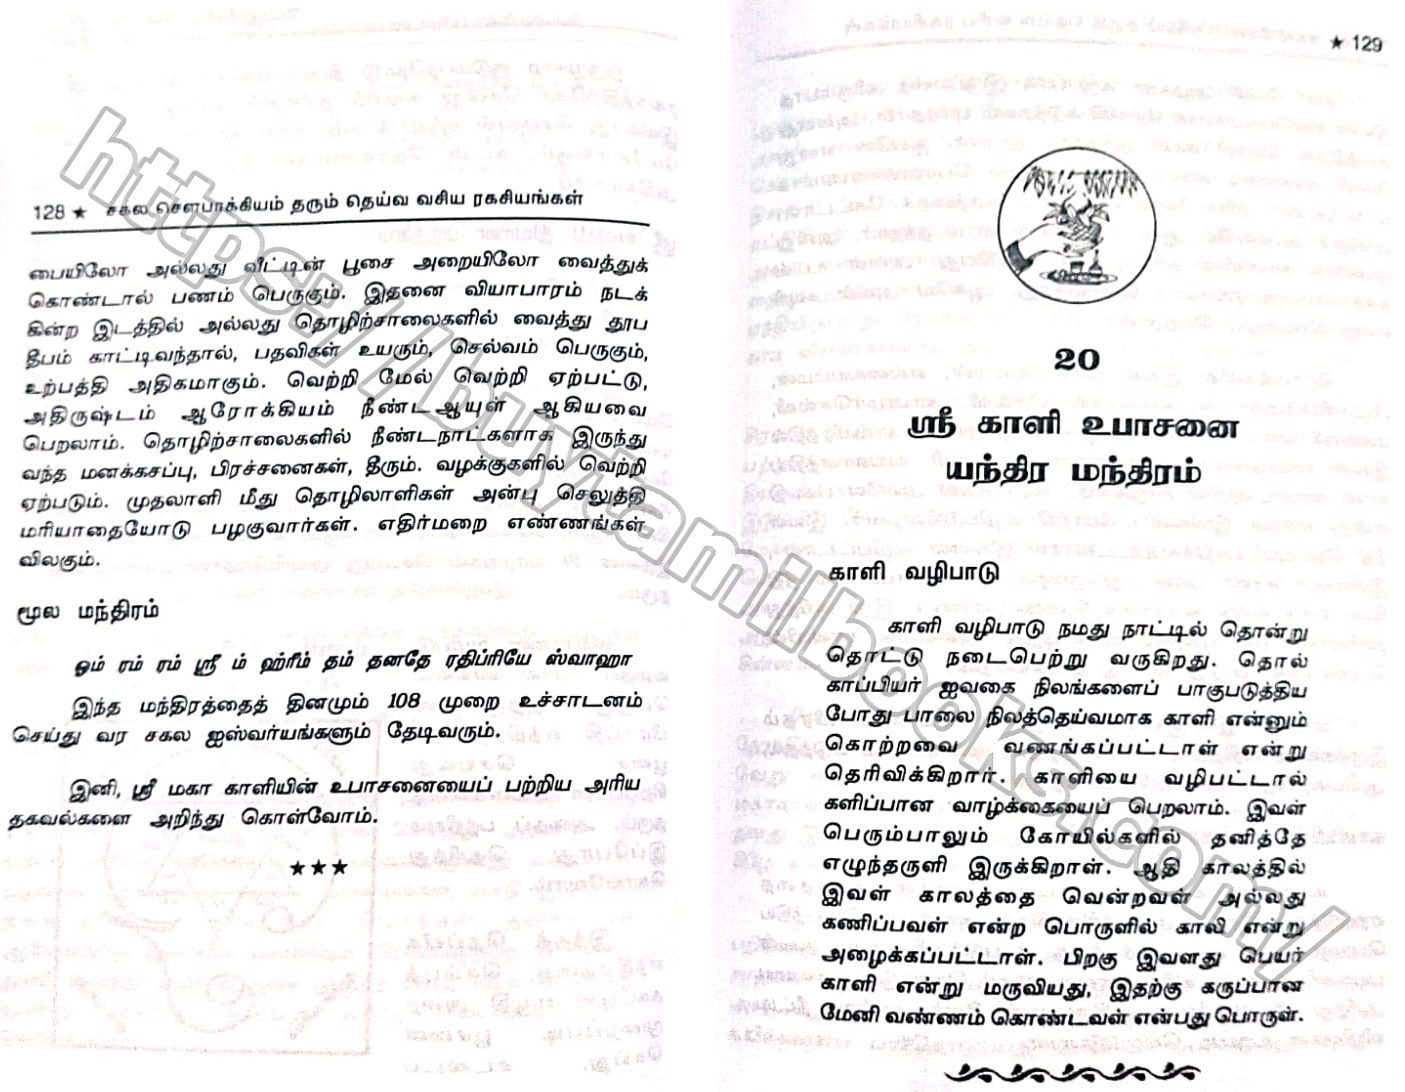 128 ★ சகல சௌபாக்கியம் தரும் தெய்வ வசிய ரகசியங்கள்
பையிலோ அல்லது வீட்டின் பூசை அறையிலோ வைத்துக்
கொண்டால் பணம் பெருகும். இதனை வியாபாரம் நடக்
கின்ற இடத்தில் அல்லது தொழிற்சாலைகளில் வைத்து தூப
தீபம் காட்டிவந்தால், பதவிகள் உயரும், செல்வம் பெருகும்,
உற்பத்தி அதிகமாகும். வெற்றி மேல் வெற்றி ஏற்பட்டு,
அதிருஷ்டம் ஆரோக்கியம் நீண்டஆயுள் ஆகியவை
பெறலாம். தொழிற்சாலைகளில் நீண்டநாட்களாக இருந்து
வந்த மனக்கசப்பு, பிரச்சனைகள், தீரும். வழக்குகளில் வெற்றி
ஏற்படும். முதலாளி மீது தொழிலாளிகள் அன்பு செலுத்தி
மரியாதையோடு பழகுவார்கள். எதிர்மறை எண்ணங்கள்
விலகும்.
மூல மந்திரம்
ஓம் ரம் ரம் ஸ்ரீ ம் ஹ்ரீம் தம் தனதே ரதிப்ரியே ஸ்வாஹா
இந்த மந்திரத்தைத் தினமும் 108 முறை உச்சாடனம்
செய்து வர சகல ஐஸ்வர்யங்களும் தேடிவரும்.
இனி, ஸ்ரீ மகா காளியின் உபாசனையைப் பற்றிய அரிய
தகவல்களை அறிந்து கொள்வோம்.
★★★
★ 129
20
ஸ்ரீ காளி உபாசனை
யந்திர மந்திரம்
காளி வழிபாடு
காளி வழிபாடு நமது நாட்டில் தொன்று
தொட்டு நடைபெற்று வருகிறது. தொல்
காப்பியர் ஐவகை நிலங்களைப் பாகுபடுத்திய
போது பாலை நிலத்தெய்வமாக காளி என்னும்
கொற்றவை வணங்கப்பட்டாள் என்று
தெரிவிக்கிறார். காளியை வழிபட்டால்
களிப்பான வாழ்க்கையைப் பெறலாம். இவள்
பெரும்பாலும் கோயில்களில் தனித்தே
எழுந்தருளி இருக்கிறாள். ஆதி காலத்தில்
இவள் காலத்தை வென்றவள் அல்லது
கணிப்பவள் என்ற பொருளில் காலி என்று
அழைக்கப்பட்டாள். பிறகு இவளது பெயர்
காளி என்று மருவியது, இதற்கு கருப்பான
மேனி வண்ணம் கொண்டவள் என்பது பொருள்.
https://buytamilbooks.com/